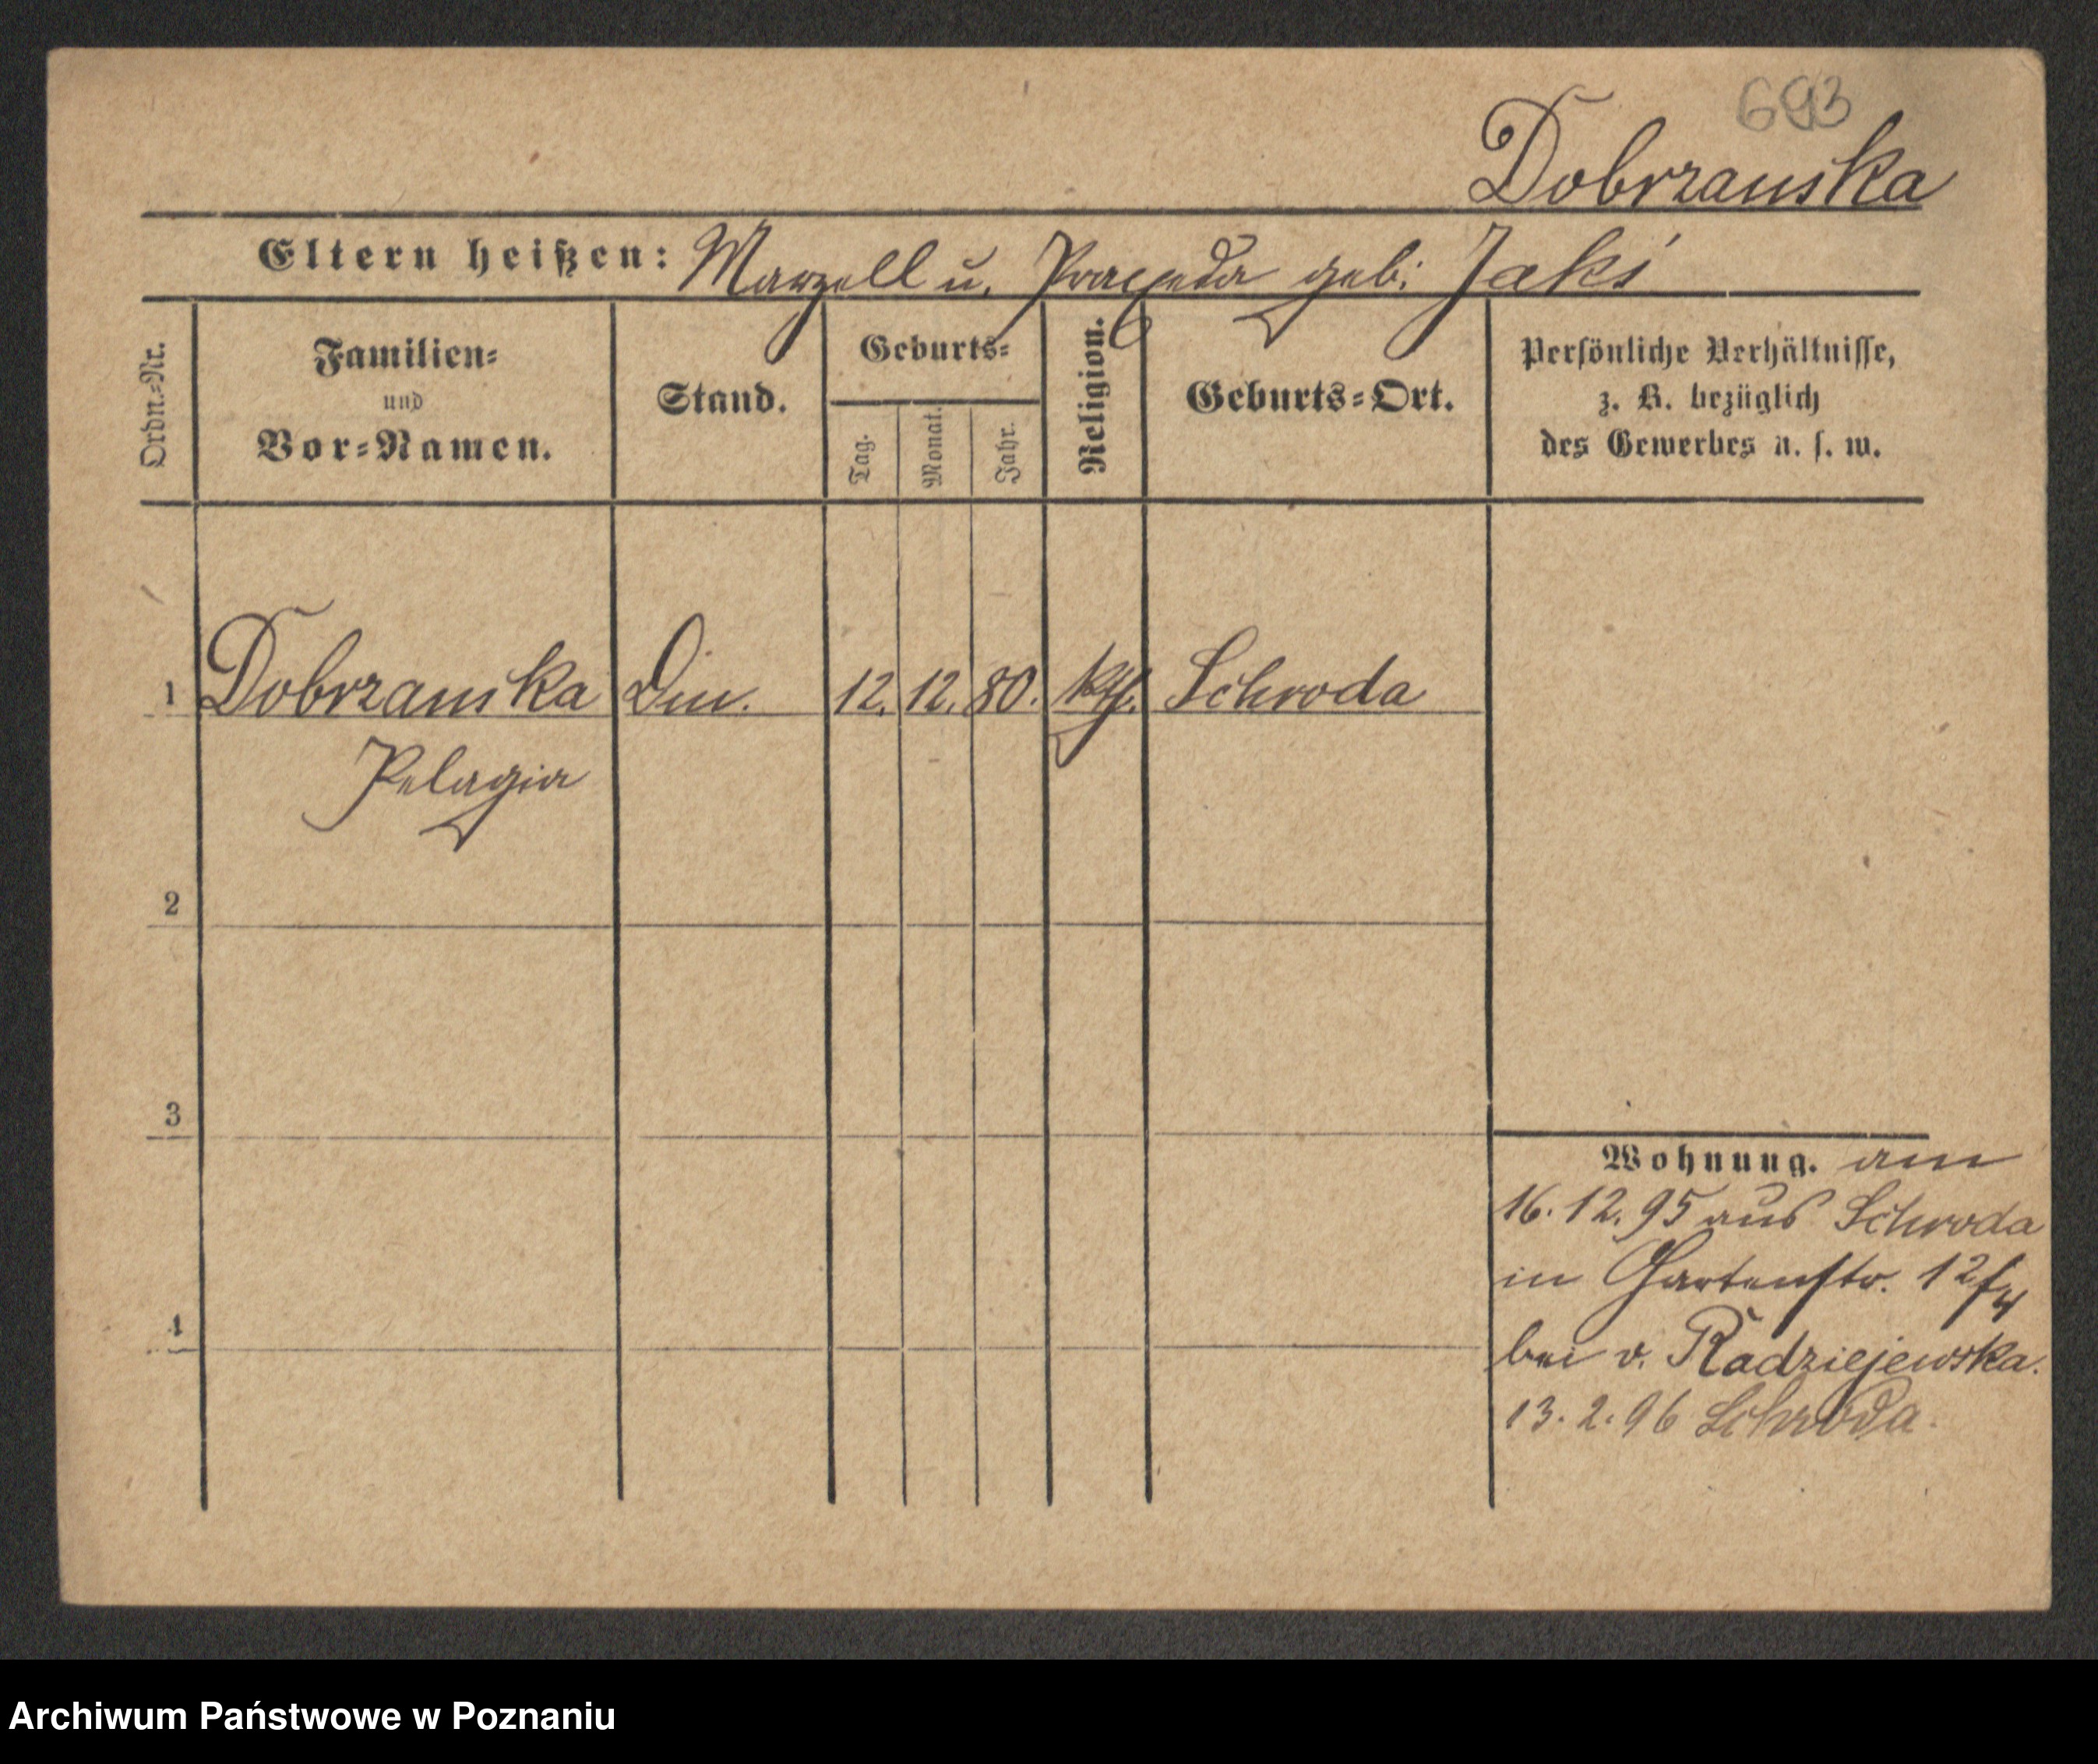 693
Dobrzanska
Eltern heißen: Marzell u. Praxeda geb. Jaks
Ordn.-Nr.
Familien-
und
Vor-Namen.
Stand.
Geburts-
Tag.
Monat.
Jahr.
Religion.
Geburts-Ort.
Persönliche Verhältnisse,
z. B. bezüglich
des Gewerbes u. s. w.
1 Dobrzanska Din. 12. 12. 80. kth. Schroda
Pelagia
2
3
4
Wohnung. am
16. 12. 95 aus Schroda
in Gartenstr. 12
bei v. Radziejewska.
13. 2. 96 Schroda.
Archiwum Państwowe w Poznaniu